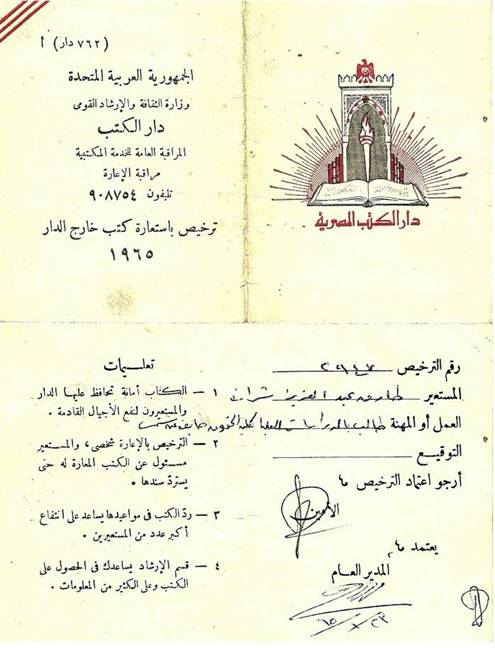 (٧٦٢ دار) ١
الجمهورية العربية المتحدة
وزارة الثقافة والإرشاد القومى
دار الكتب
المراقبة العامة للخدمة المكتبية
مراقبة الإعارة
تليفون ٩٠٨٧٥٤
ترخيص باستعارة كتب خارج الدار
١٩٦٥
دار الكتب المصرية
رقم الترخيص
المستعير طارق عبد العزيز
العمل أو المهنة طالب بالدراسات العليا كلية الحقوق جامعة
التوقيع
أرجو اعتماد الترخيص ،
الأمين
يعتمد ،
المدير العام
تعليمات
١ – الكتاب أمانة تحافظ عليها الدار
والمستعيرون لنفع الأجيال القادمة .
٢ – الترخيص بالإعارة شخصى ، والمستعير
مسئول عن الكتب المعارة له حتى
يستردّ سندها .
٣ – ردّ الكتب فى مواعيدها يساعد على انتفاع
أكبر عدد من المستعيرين .
٤ – قسم الإرشاد يساعدك فى الحصول على
الكتب وعلى الكثير من المعلومات .